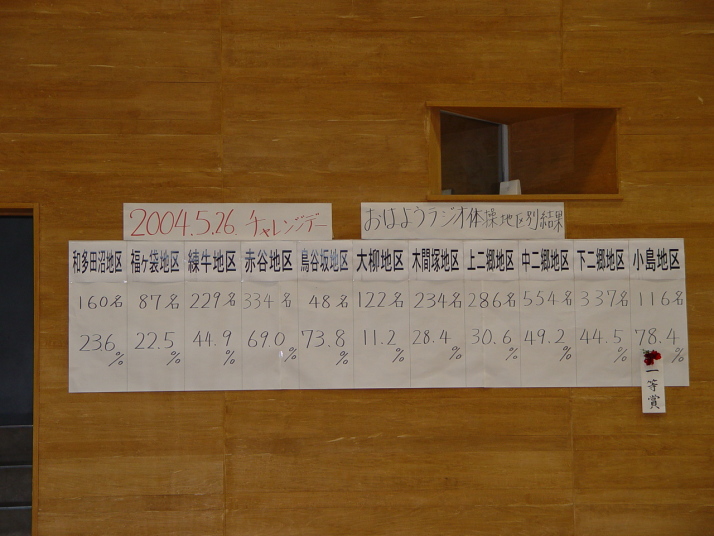 2004.5.26 チャレンジデー
おはようラジオ体操地区別結果
和多田沼地区 福ヶ袋地区 練牛地区 赤谷地区 鳥谷坂地区 大柳地区 木間塚地区 上二郷地区 中二郷地区 下二郷地区 小島地区
160名 87名 229名 334名 48名 122名 234名 286名 554名 337名 116名
23.6% 22.5% 44.9% 69.0% 73.8% 11.2% 28.4% 30.6% 49.2% 44.5% 78.4%
一等賞